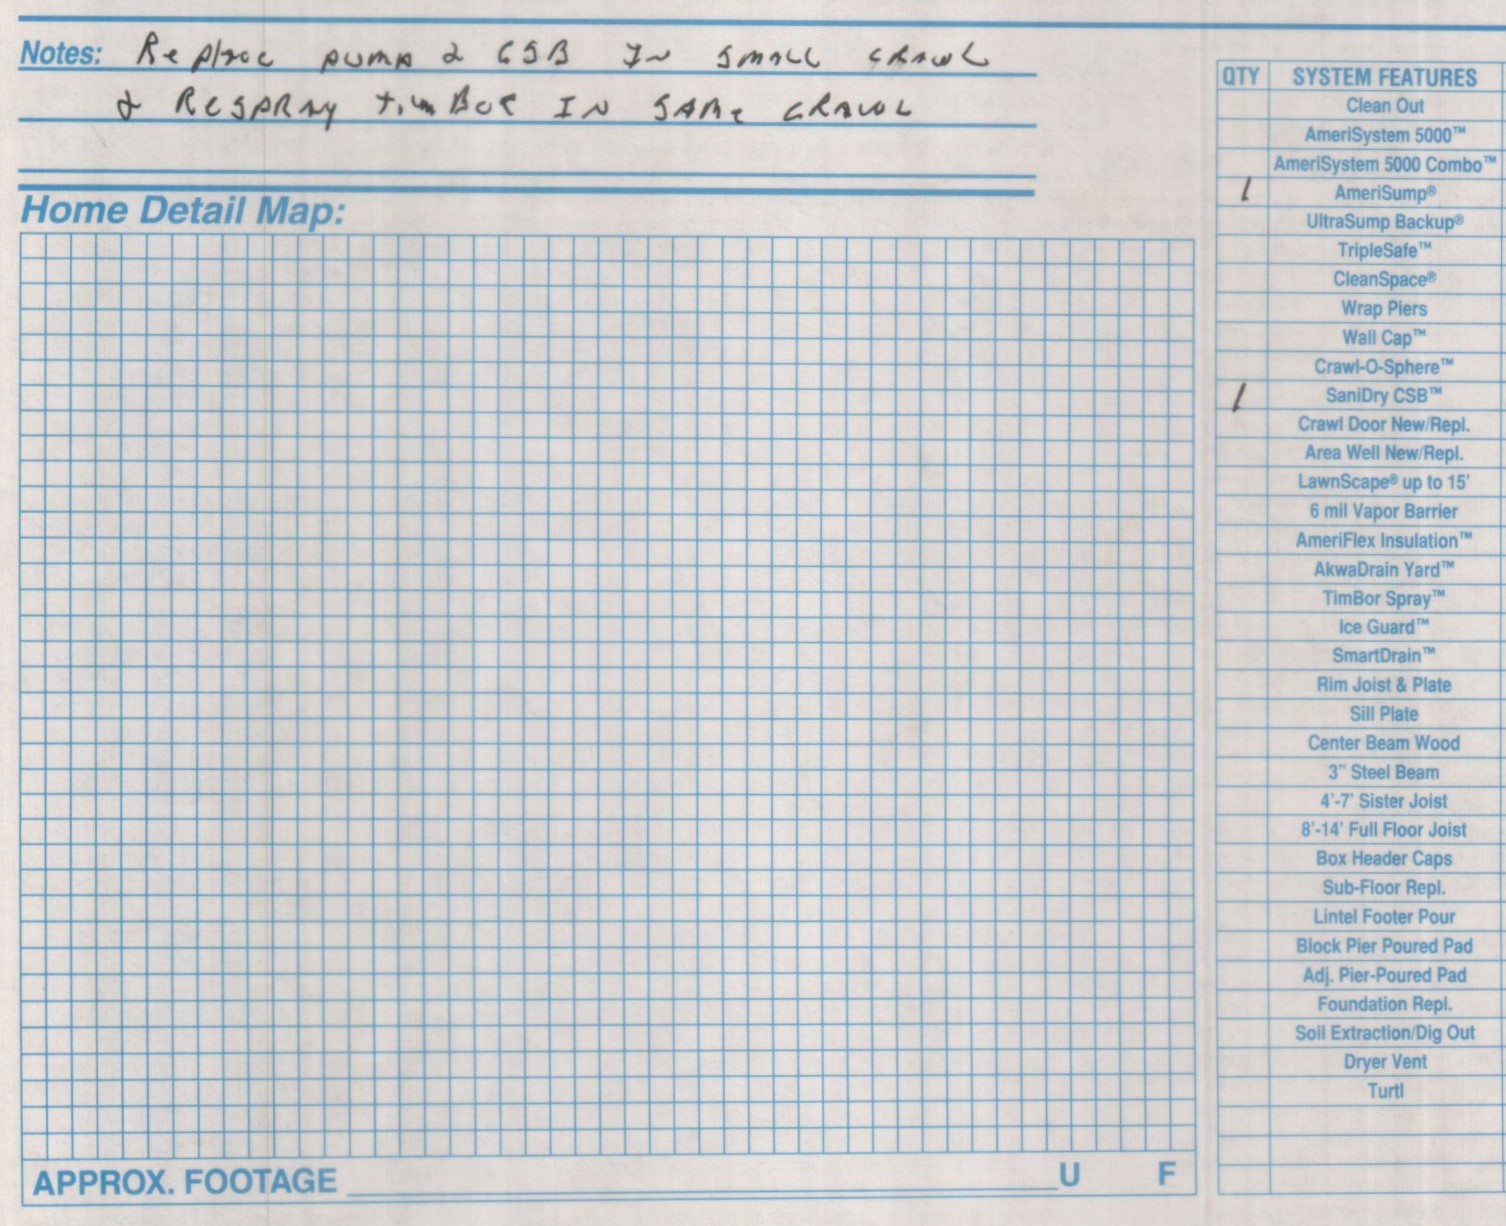 Notes: Replace pump & CSB IN SMALL CRAWL
& RESPRAY timBor IN SAME CRAWL
Home Detail Map:
APPROX. FOOTAGE U F
QTY SYSTEM FEATURES
Clean Out
AmeriSystem 5000™
AmeriSystem 5000 Combo™
1 AmeriSump®
UltraSump Backup®
TripleSafe™
CleanSpace®
Wrap Piers
Wall Cap™
Crawl-O-Sphere™
1 SaniDry CSB™
Crawl Door New/Repl.
Area Well New/Repl.
LawnScape® up to 15'
6 mil Vapor Barrier
AmeriFlex Insulation™
AkwaDrain Yard™
TimBor Spray™
Ice Guard™
SmartDrain™
Rim Joist & Plate
Sill Plate
Center Beam Wood
3" Steel Beam
4'-7' Sister Joist
8'-14' Full Floor Joist
Box Header Caps
Sub-Floor Repl.
Lintel Footer Pour
Block Pier Poured Pad
Adj. Pier-Poured Pad
Foundation Repl.
Soil Extraction/Dig Out
Dryer Vent
Turtl